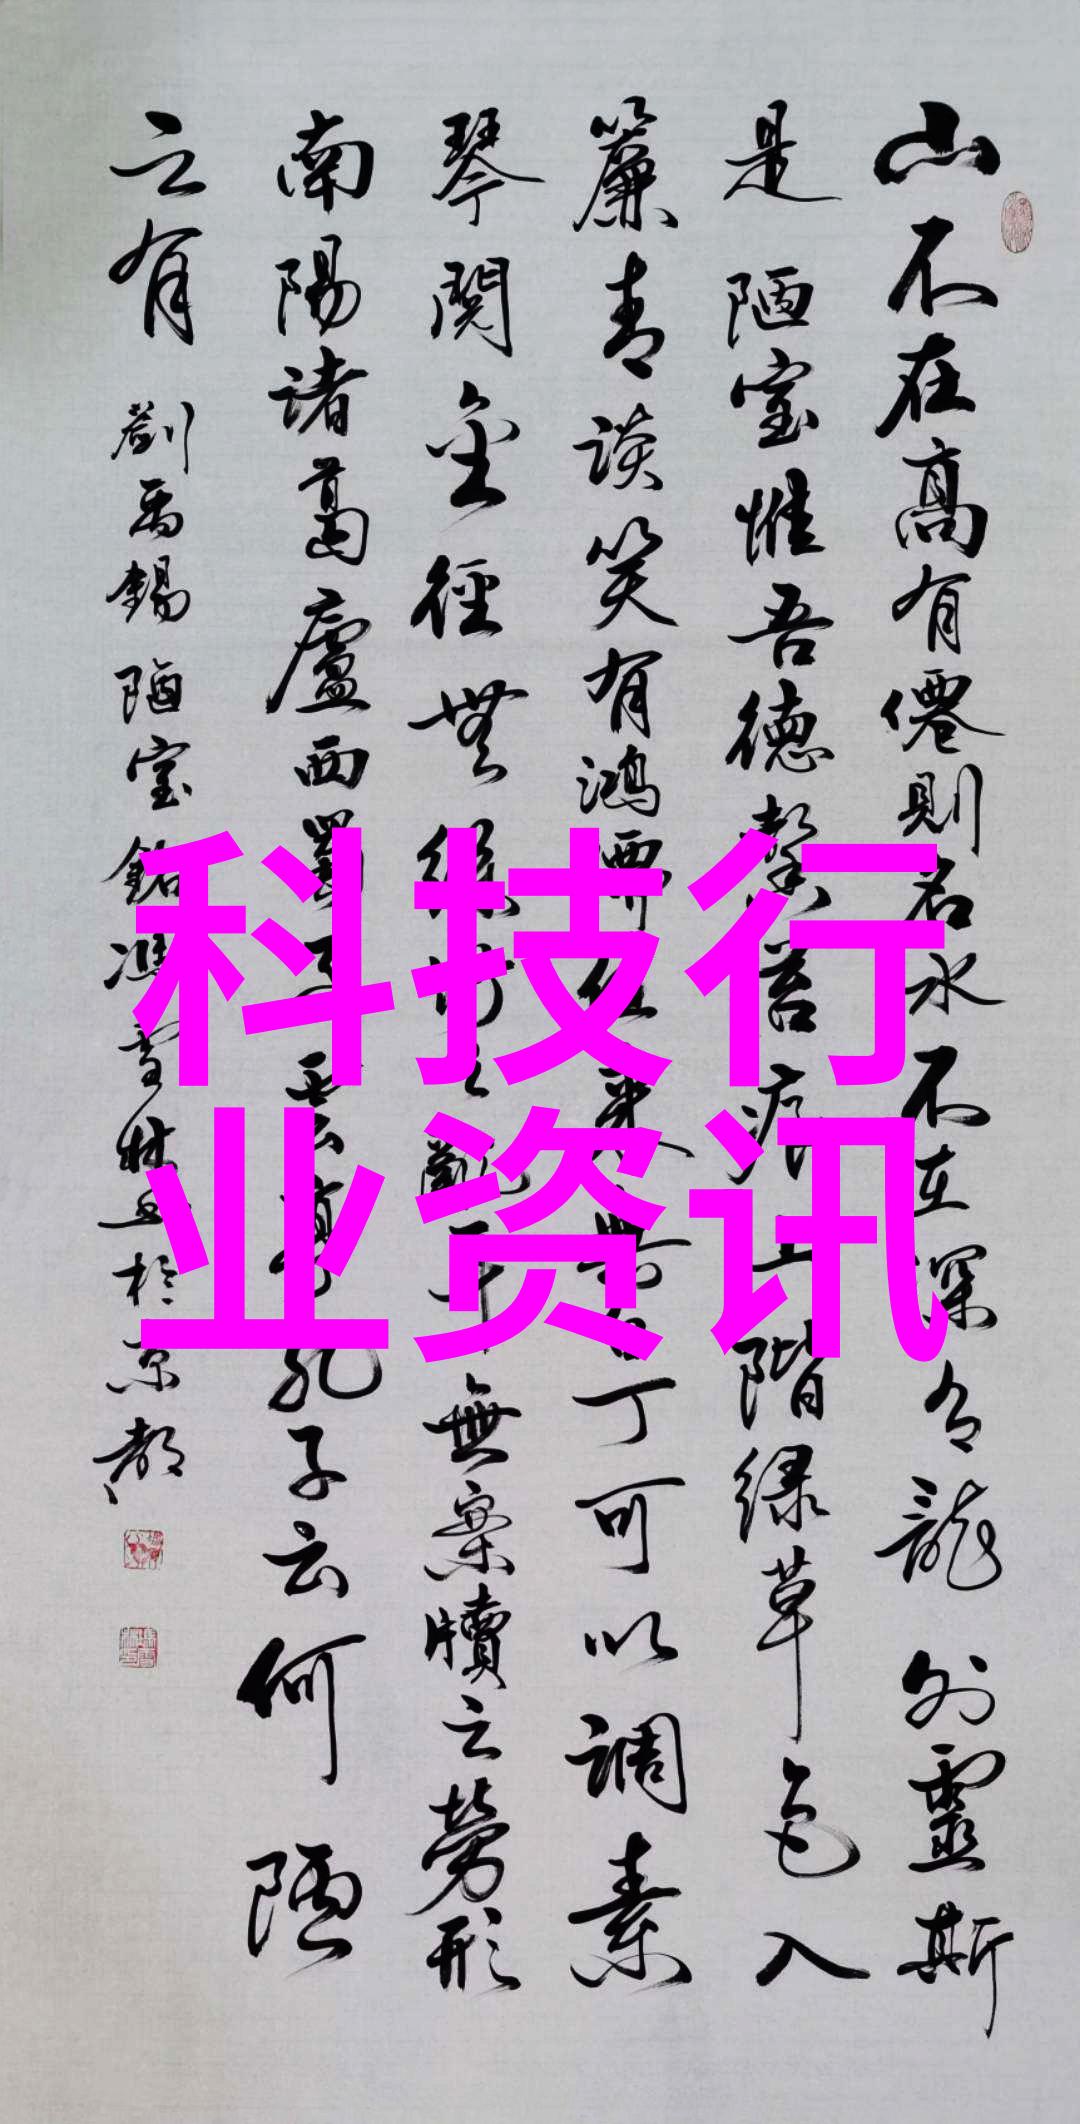 山不在高有僊則名水不在深有龍則靈斯
是陋室惟吾德馨苔痕上階绿草色入
簾青談笑有鴻儒往來無白丁可以調素
琴閱金徑無絲竹之亂耳無案牘之勞形
南陽諸葛廬西蜀子雲亭孔子云何陋
之有 劉禹錫陋室銘馮雪林書於京都
科技行
业资讯